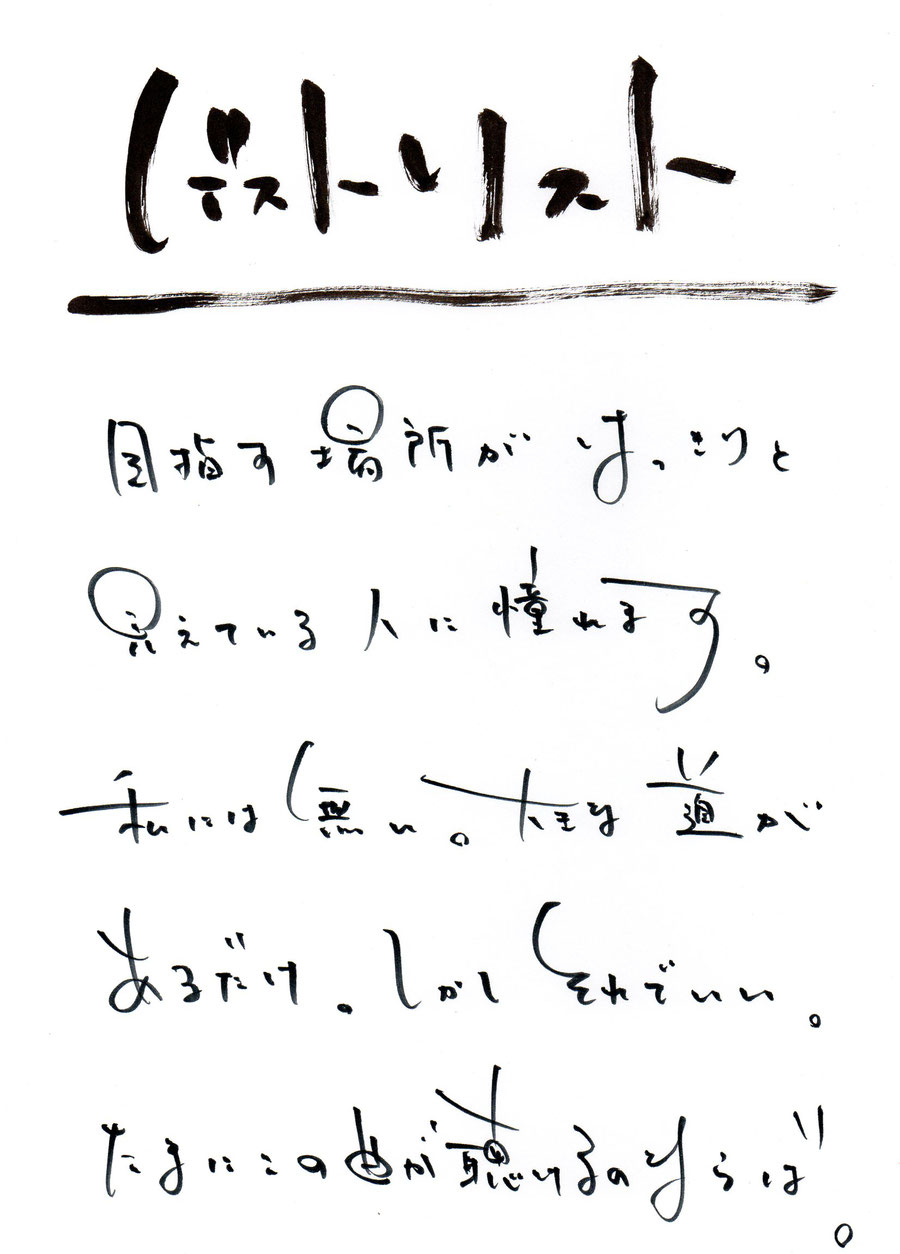 目指す場所がはっきりと
見えている人に憧れます。
私には無い。大きな道が
あるだけ。しかしそれでいい。
たまにこの曲が聴けるのならば。